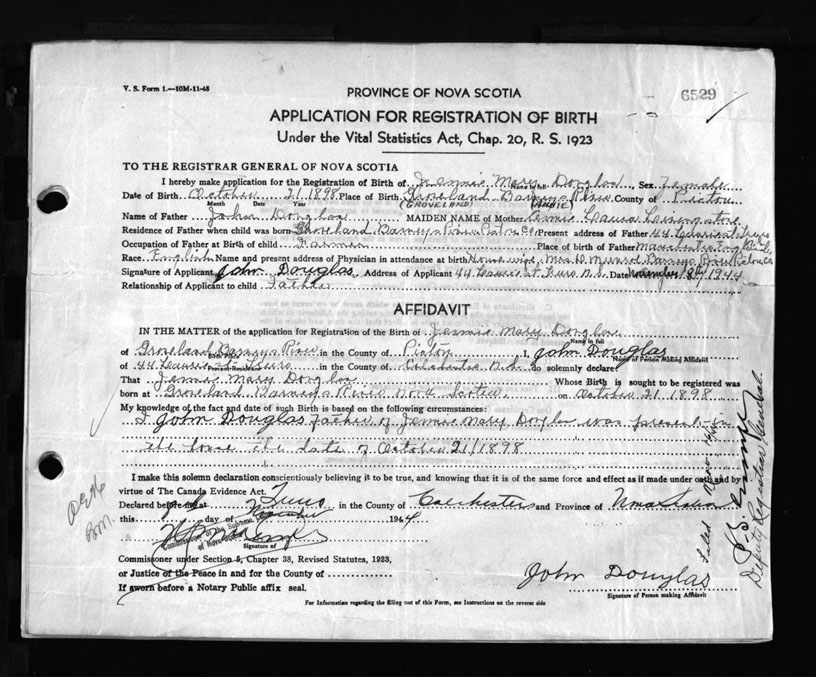 V. S. Form 1.—10M-11-43
6529
PROVINCE OF NOVA SCOTIA
APPLICATION FOR REGISTRATION OF BIRTH
Under the Vital Statistics Act, Chap. 20, R. S. 1923
TO THE REGISTRAR GENERAL OF NOVA SCOTIA
I hereby make application for the Registration of Birth of Jennie Mary Douglas, Sex Female
Name in full
Date of Birth October 21 1898 Place of Birth Groveland Barneys River County of Pictou
Month Date Year (GROVELAND)
Name of Father John Douglas MAIDEN NAME of Mother Laura
Residence of Father when child was born Groveland Barneys River Pictou Co. Present address of Father 44 Truro
Occupation of Father at Birth of child Farmer Place of birth of Father Manchester Eng
Race English Name and present address of Physician in attendance at birth Housewife, Mrs D. Munroe Barneys River Pictou Co
Signature of Applicant John Douglas Address of Applicant 44 Truro N.S. Date November 1944
Relationship of Applicant to child Father
AFFIDAVIT
IN THE MATTER of the application for Registration of the Birth of Jennie Mary Douglas
Name in full
of Groveland Barneys River in the County of Pictou I, John Douglas
Name of Person Making Affidavit
of 44 Truro in the County of Colchester N.S. do solemnly declare
That Jennie Mary Douglas Whose Birth is sought to be registered was
born at Groveland Barneys River Nova Scotia, on October 21 1898
My knowledge of the fact and date of such Birth is based on the following circumstances:
I John Douglas Father of Jennie Mary Douglas was present in
the home the date of October 21/1898
I make this solemn declaration conscientiously believing it to be true, and knowing that it is of the same force and effect as if made under oath and by
virtue of The Canada Evidence Act.
Declared before me at Truro in the County of Colchester and Province of Nova Scotia
this day of November 1944
Signature of
Commissioner under Section 5, Chapter 38, Revised Statutes, 1923,
or Justice of the Peace in and for the County of
If sworn before a Notary Public affix seal.
John Douglas
Signature of Person making Affidavit
For Information regarding the filling out of this Form, see Instructions on the reverse side
Filed
Deputy Registrar General